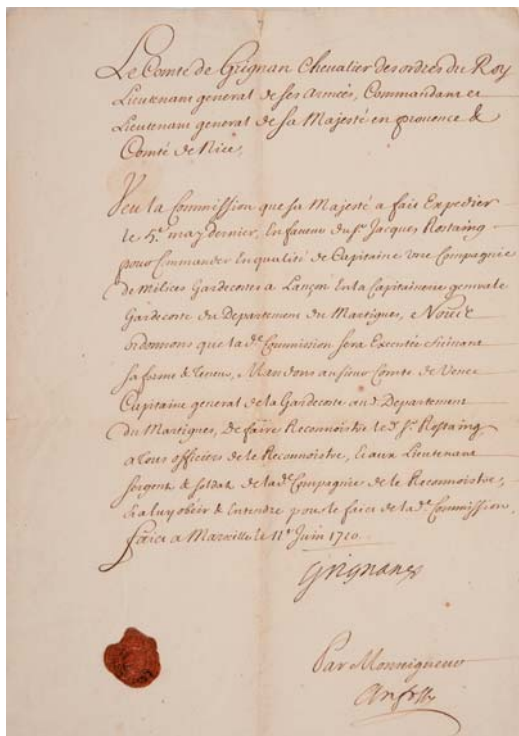 Le Comte de Grignan Chevalier des ordres du Roy
Lieutenant general de ses Armées, Commandant et
Lieutenant general de sa Majesté en provence &
Comté de Nice,
Veu la Commission que sa Majesté a fait Expedier
le 5.e may dernier, En faveur du Sr. Jacques Rostaing
pour Commander En qualité de Capitaine une Compagnie
de Milices Gardecostes a Lançon En la Capitainerie generale
Gardecoste du Departement du Martigues, Nous
ordonnons que la de. Commission sera Executée suivant
sa forme & teneur, Mandons au sieur Comte de Vence
Capitaine general de la Gardecoste aud. Departement
du Martigues, De faire Reconnoistre led. Sr. Rostaing
a tous officiers de le Reconnoistre, Et aux Lieutenant
sergent & soldat de lade. Compagnie de le Reconnoistre,
& a luy obéir & Entendre pour le faict de lade. Commission,
faict a Marseille le 11e Juin 1710
Grignan
Par Monseigneur